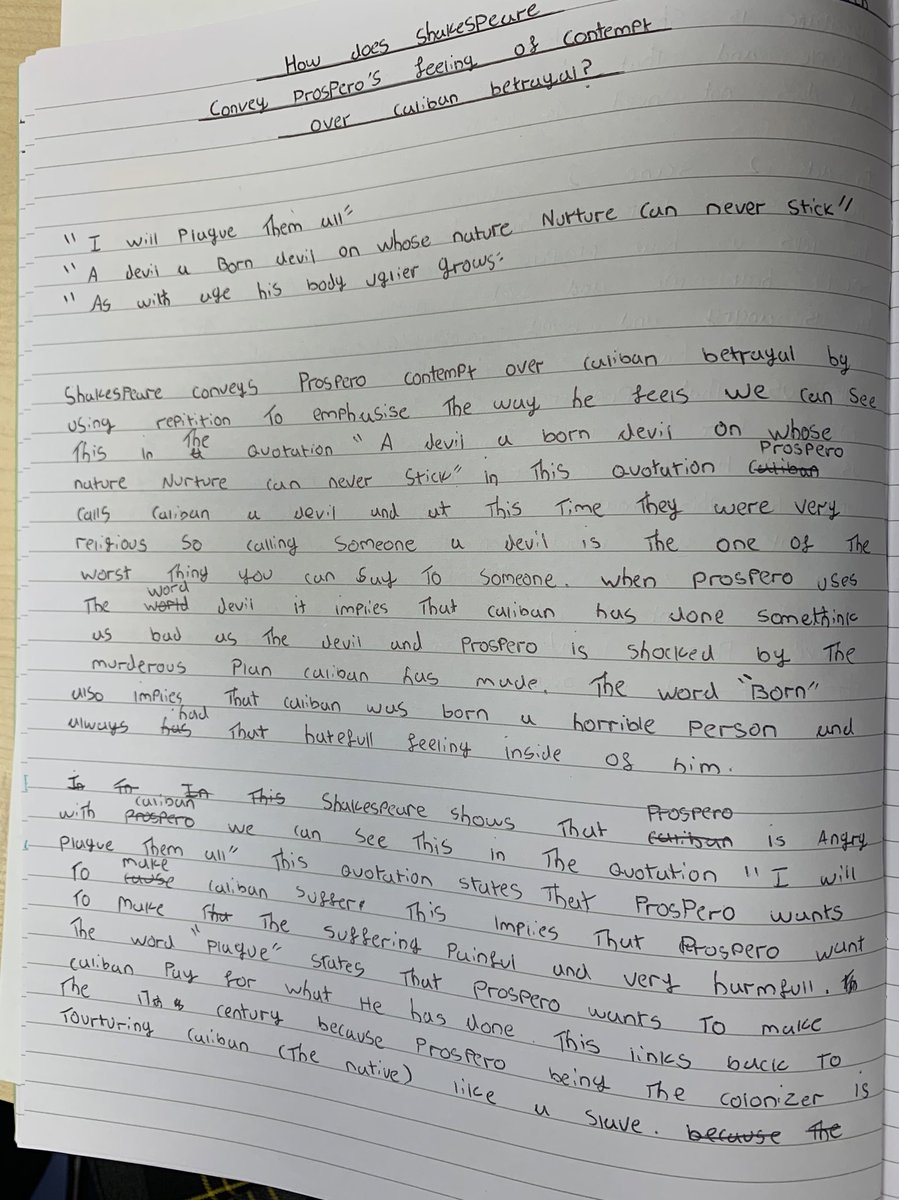 How does Shakespeare
Convey Prospero's feeling of contempt
over caliban betrayal?
"I will Plague Them all"
"A devil a Born devil on whose nature Nurture can never stick"
"As with age his body uglier grows"
Shakespeare conveys Prospero contempt over caliban betrayal by
using repitition To emphasise The way he feels we can see
This in The Quotation "A devil a born devil on whose
nature Nurture can never stick" in This Quotation Caliban Prospero
calls caliban a devil and at This Time They were very
religious so calling someone a devil is The one of The
worst Thing you can say To someone. when Prospero uses
The world word devil it implies That caliban has done somethink
as bad as The devil and Prospero is shocked by The
murderous Plan caliban has made. The word "Born"
also implies That caliban was born a horrible Person and
always has had That hatefull feeling inside of him.
In To In This Shakespeare shows That Caliban Prospero is Angry
with Prospero caliban we can see This in The Quotation "I will
Plague Them all" This Quotation states That Prospero wants
To cause make caliban suffere This implies That Prospero want
To make That The suffering Painful and very harmfull.
The word "Plague" states That Prospero wants To make
caliban Pay for what He has done. This links back To
The 17th century because Prospero being The colonizer is
Tourturing caliban (The native) like a slave. because The